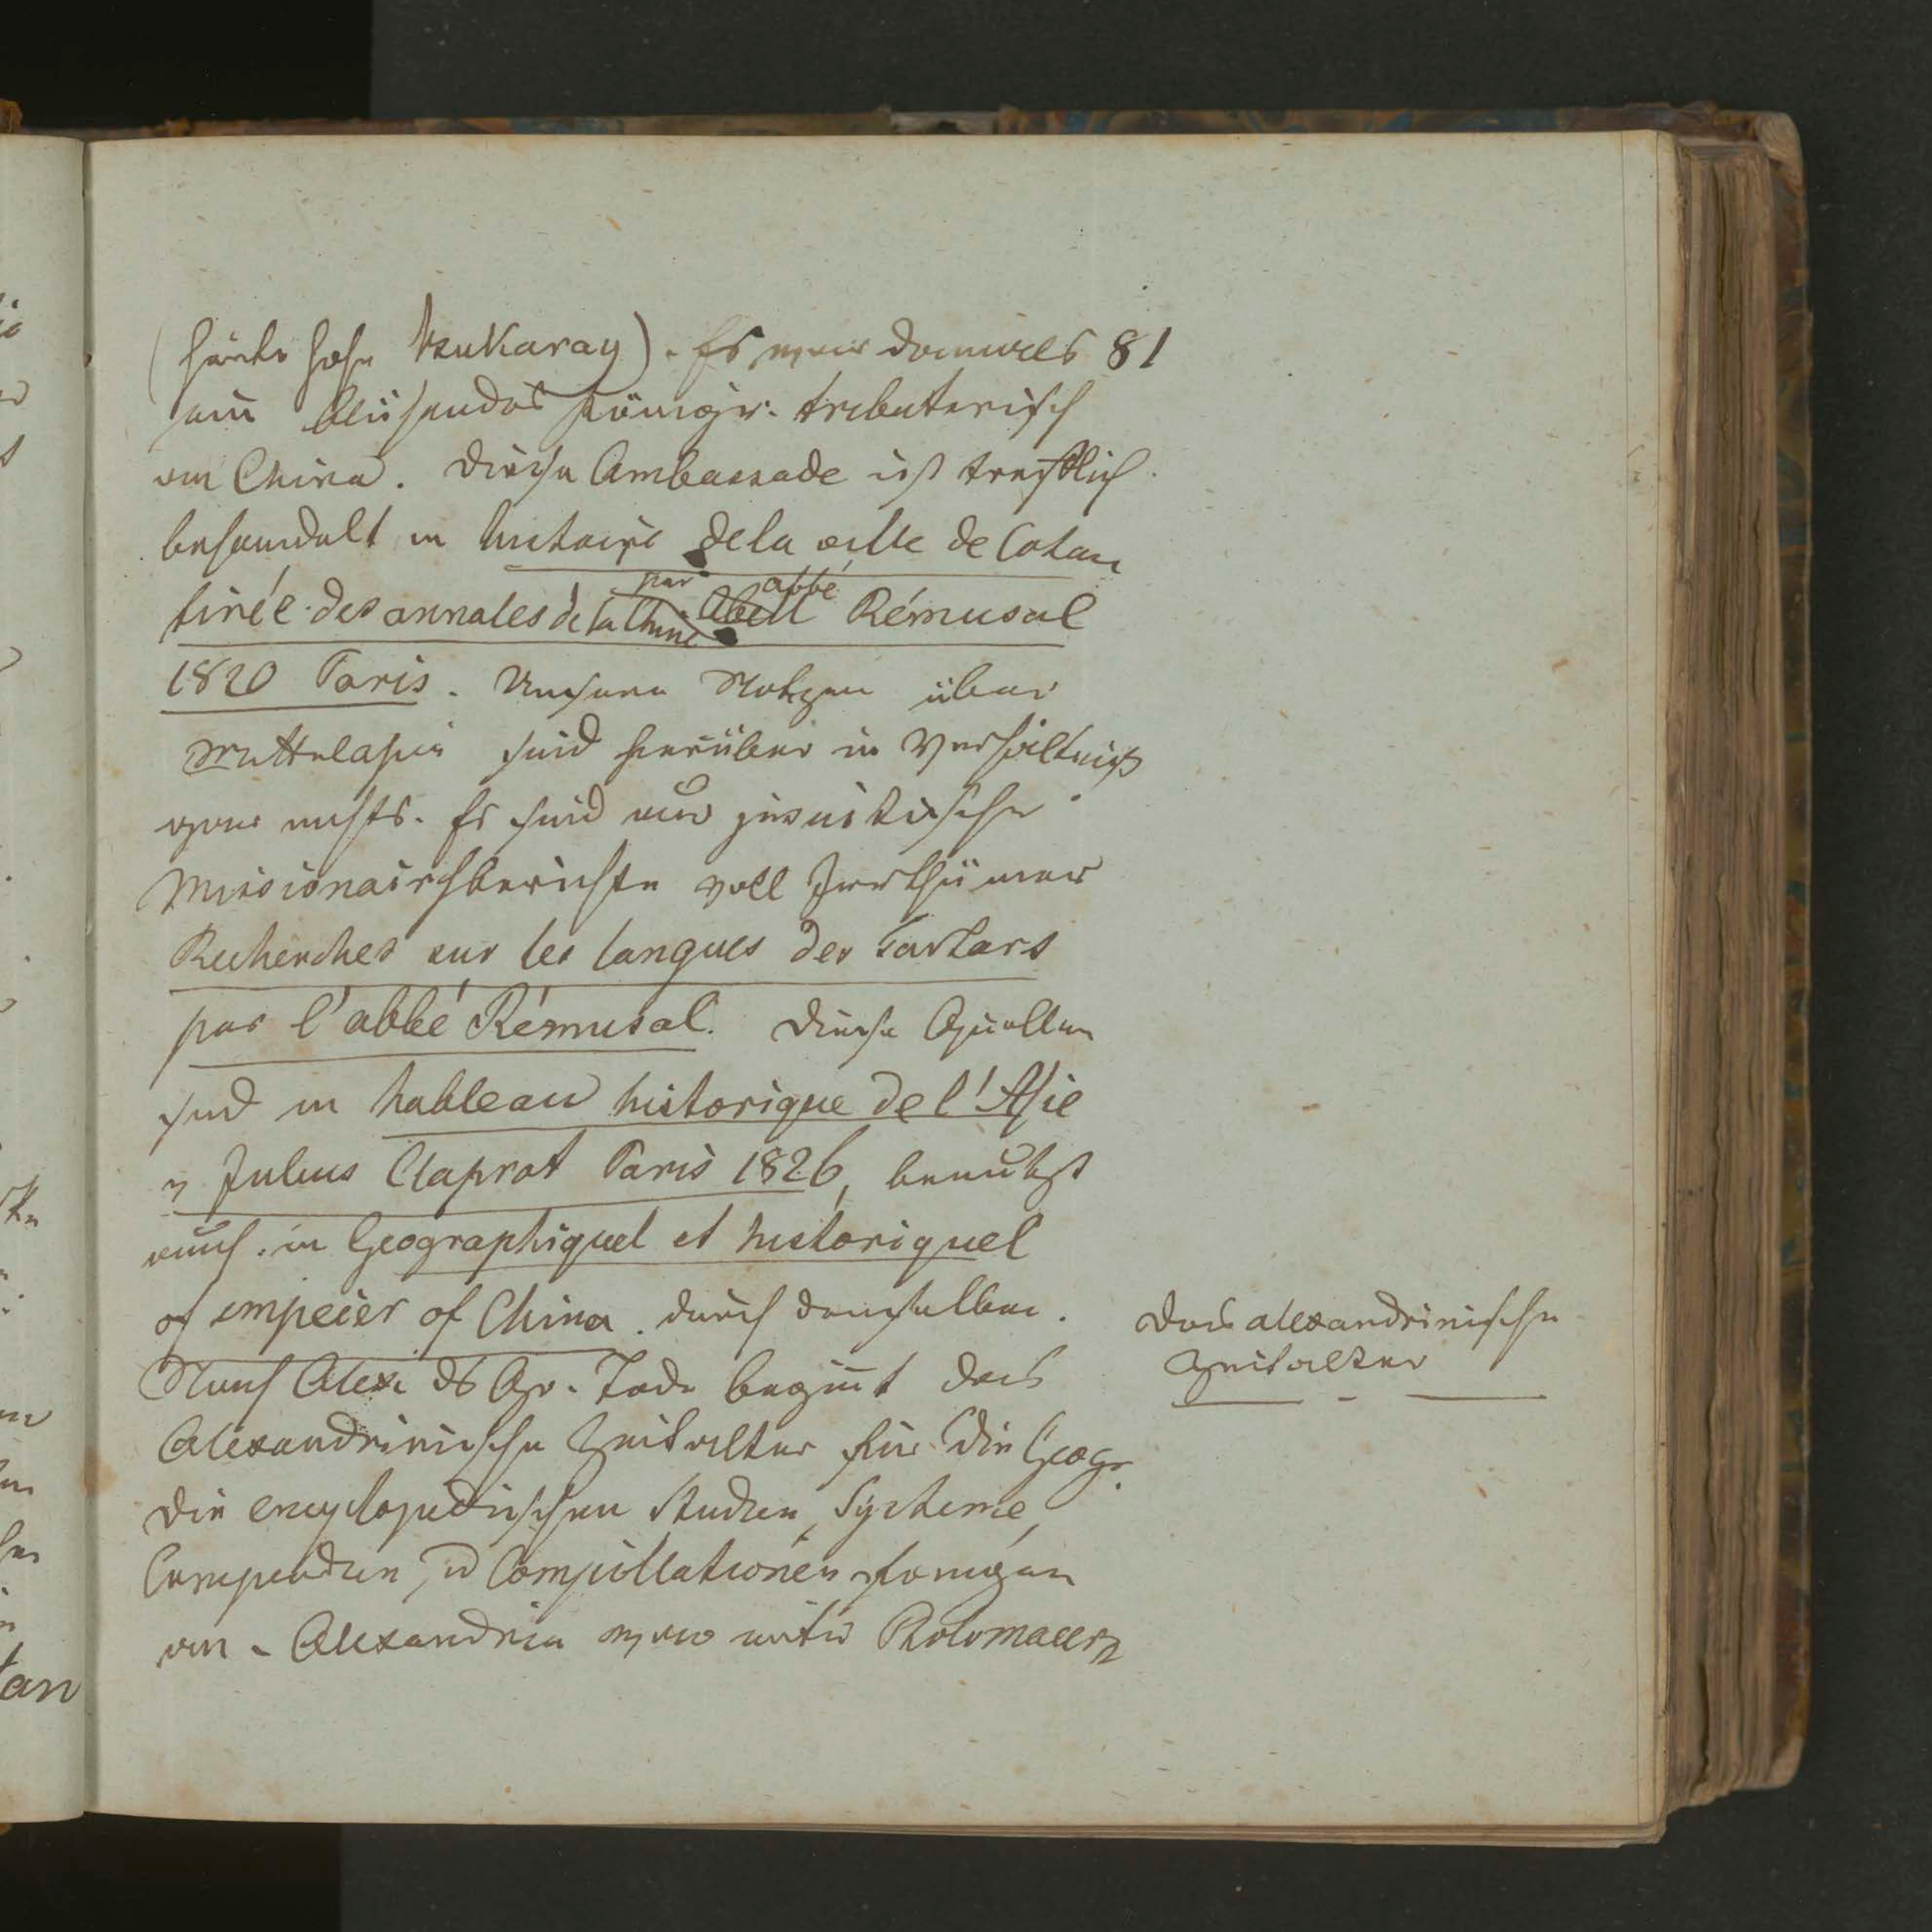 81
(heute hohe Bukaray). Es war damals
ein blühendes Königr. tributarisch
an China. Diese Ambassade ist trefflich
behandelt in histoire de la ville de Cotan
tirée des annales de la Chine par abbé Abell Rémusal
1820 Paris. Unsere Notizen über
Mittelasien sind hierüber in Verhältniß
gar nichts. Es sind nur jesuitische
Missionairsberichte voll Irrthümer
Recherches sur les langues des Tartars
par l'abbé Rémusal. Diese Quellen
sind in tableau historique de l'Asie
v Julius Claprot Paris 1826, benutzt
auch in Geographiquel et historiquel
of empeier of China durch denselben.
Nach Alex. ds Gr. Tode beginnt das
Alexandrinische Zeitalter für die Geogr.
die encyclopedischen Studien, Systeme,
Compendien, u Compillationen fangen
an. Alexandria war unter Ptolomaeern
das alexandrinische
Zeitalter